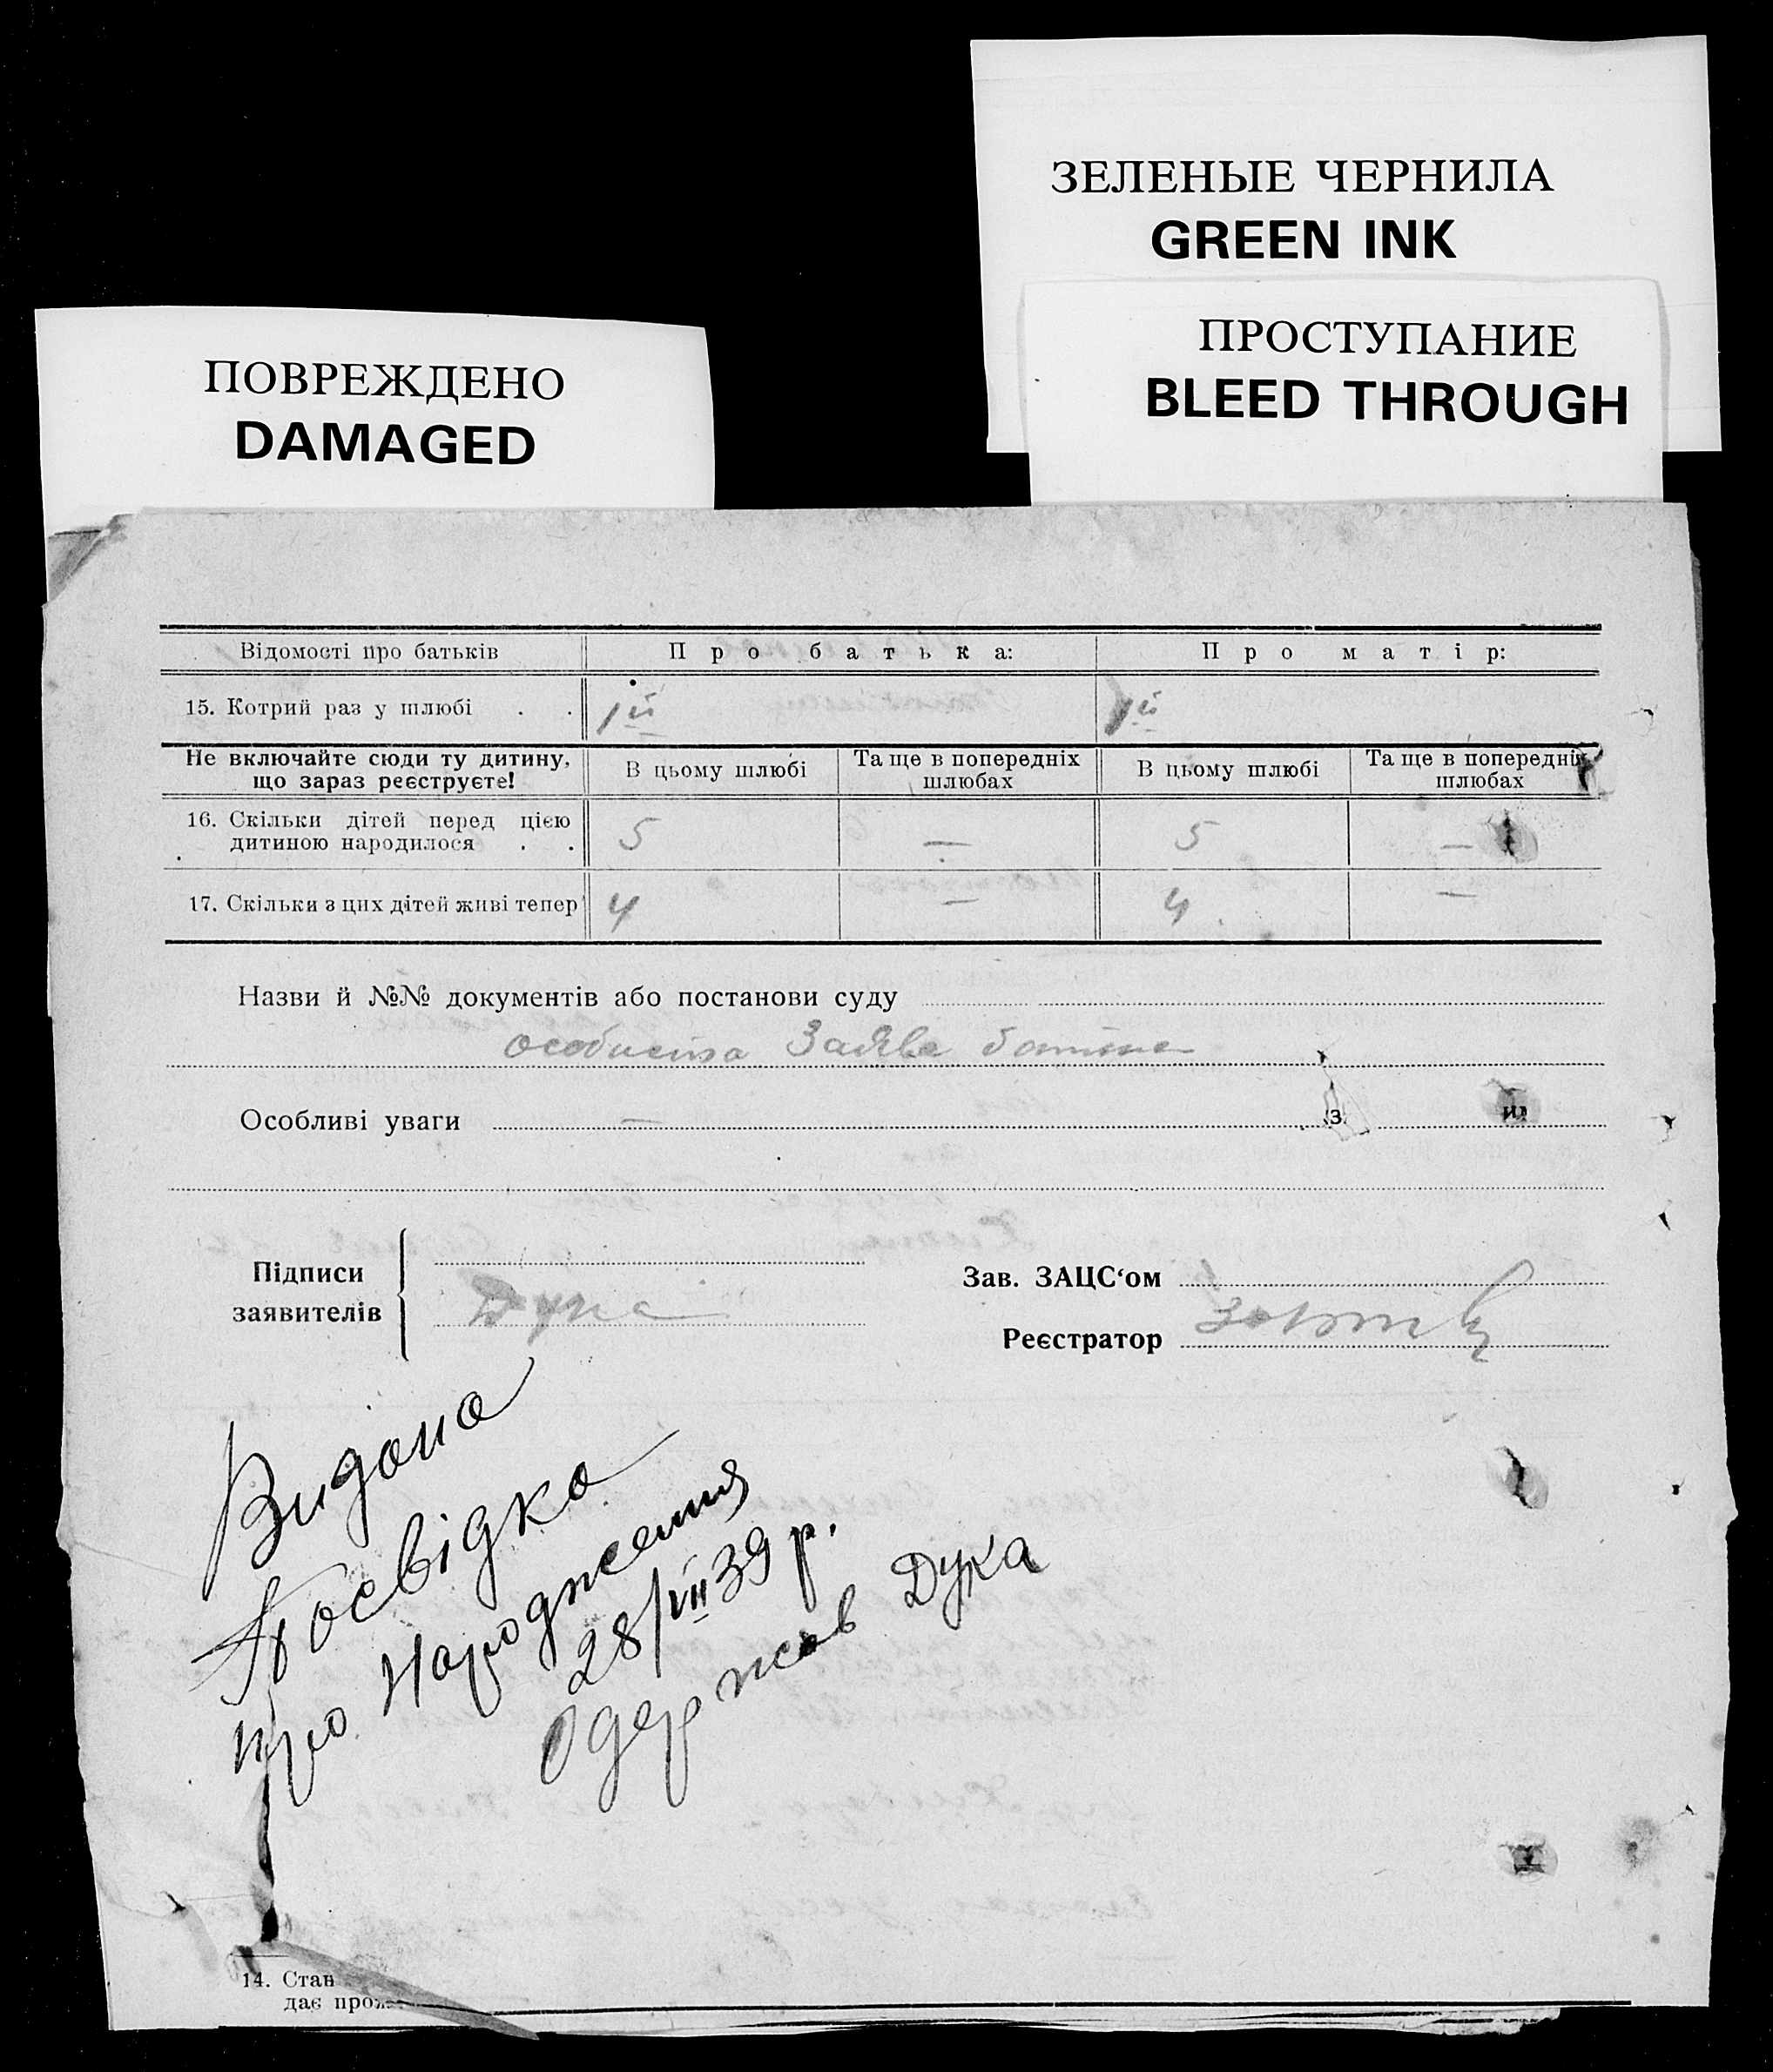 ЗЕЛЕНЫЕ ЧЕРНИЛА
GREEN INK
ПРОСТУПАНИЕ
BLEED THROUGH
ПОВРЕЖДЕНО
DAMAGED
Відомості про батьків Про батька: Про матір:
15. Котрий раз у шлюбі . . 1й 1й
Не включайте сюди ту дитину, що зараз реєструєте! В цьому шлюбі Та ще в попередніх шлюбах В цьому шлюбі Та ще в попередніх шлюбах
16. Скільки дітей перед цією
дитиною народилося . . 5 — 5 —
17. Скільки з цих дітей живі тепер 4 — 4 —
Назви й №№ документів або постанови суду
особиста Заява батька
Особливі уваги —
Підписи
заявителів
Дука
Зав. ЗАЦС‘ом
Реєстратор
Видана
Посвідка
про Народження
28/VII 39 р.
Одержав Дука
14. Стан
дає прож